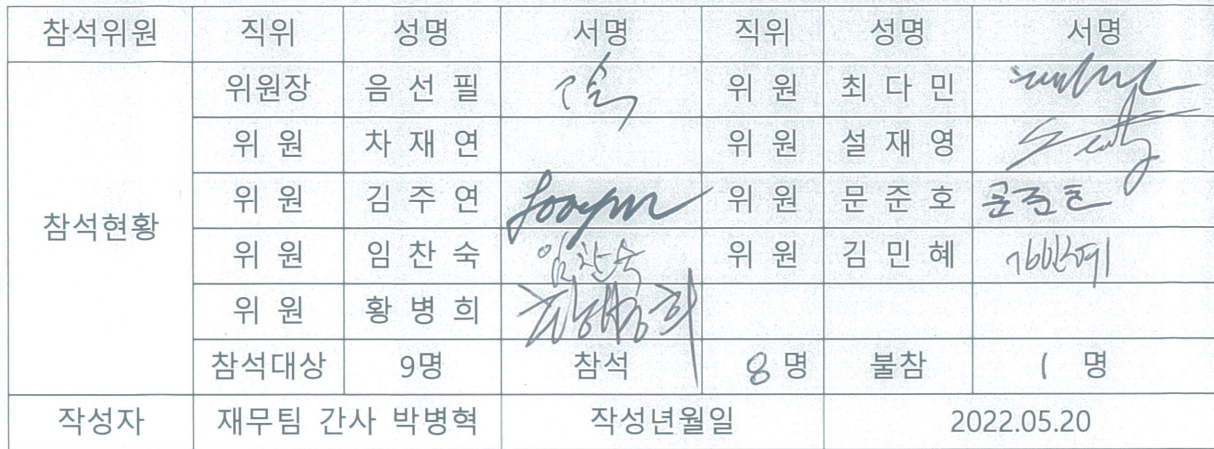 참석위원 직위 성명 서명 직위 성명 서명
위원장 음 선 필 위 원 최 다 민
위 원 차 재 연 위 원 설 재 영
참석현황 위 원 김 주 연 위 원 문 준 호 문준호
위 원 임 찬 숙 임찬숙 위 원 김 민 혜 김민혜
위 원 황 병 희 황병희
참석대상 9명 참석 8 명 불참 1 명
작성자 재무팀 간사 박병혁 작성년월일 2022.05.20